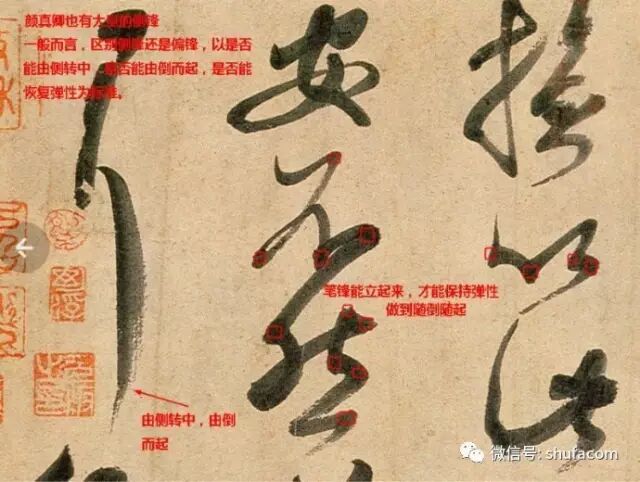 颜真卿也有大量的侧锋
一般而言，区别侧锋还是偏锋，以是否
能由侧转中，是否能由倒而起，是否能
恢复弹性为标准。
拯以此
安不然
耳
笔锋能立起来，才能保持弹性
做到随倒随起
由侧转中，由倒
而起
微信号: shufacom